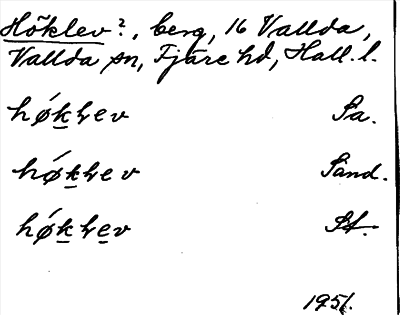 Höklev?, berg, 16 Vallda,
Vallda sn, Fjäre hd, Hall. l.
hǿkLev Sa.
hǿkLev Sand.
hǿkLev St.
1951.